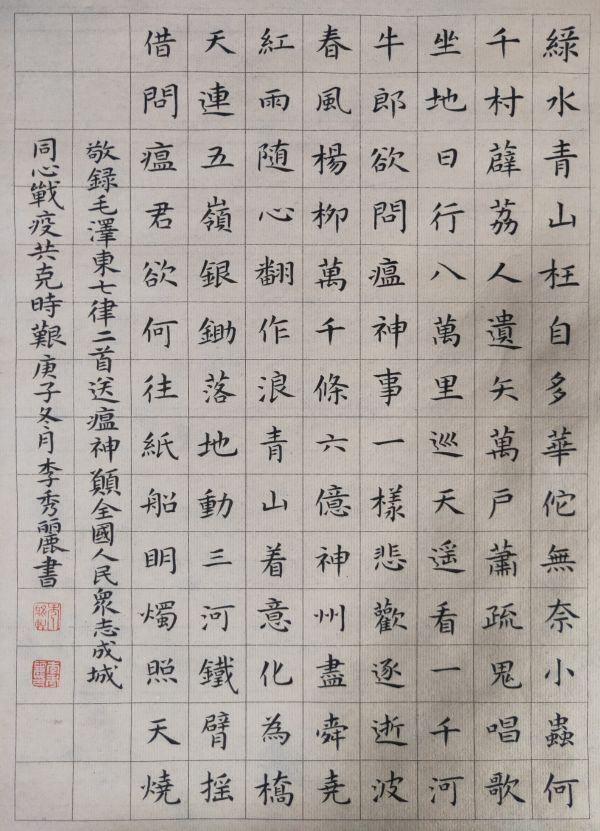 綠水青山枉自多華佗無奈小蟲何
千村薜荔人遺矢萬戶蕭疏鬼唱歌
坐地日行八萬里巡天遥看一千河
牛郎欲問瘟神事一樣悲歡逐逝波
春風楊柳萬千條六億神州盡舜堯
紅雨随心翻作浪青山着意化為橋
天連五嶺銀鋤落地動三河鐵臂摇
借問瘟君欲何往紙船明燭照天燒
敬録毛澤東七律二首送瘟神願全國人民眾志成城
同心戰疫共克時艱庚子冬月李秀麗書